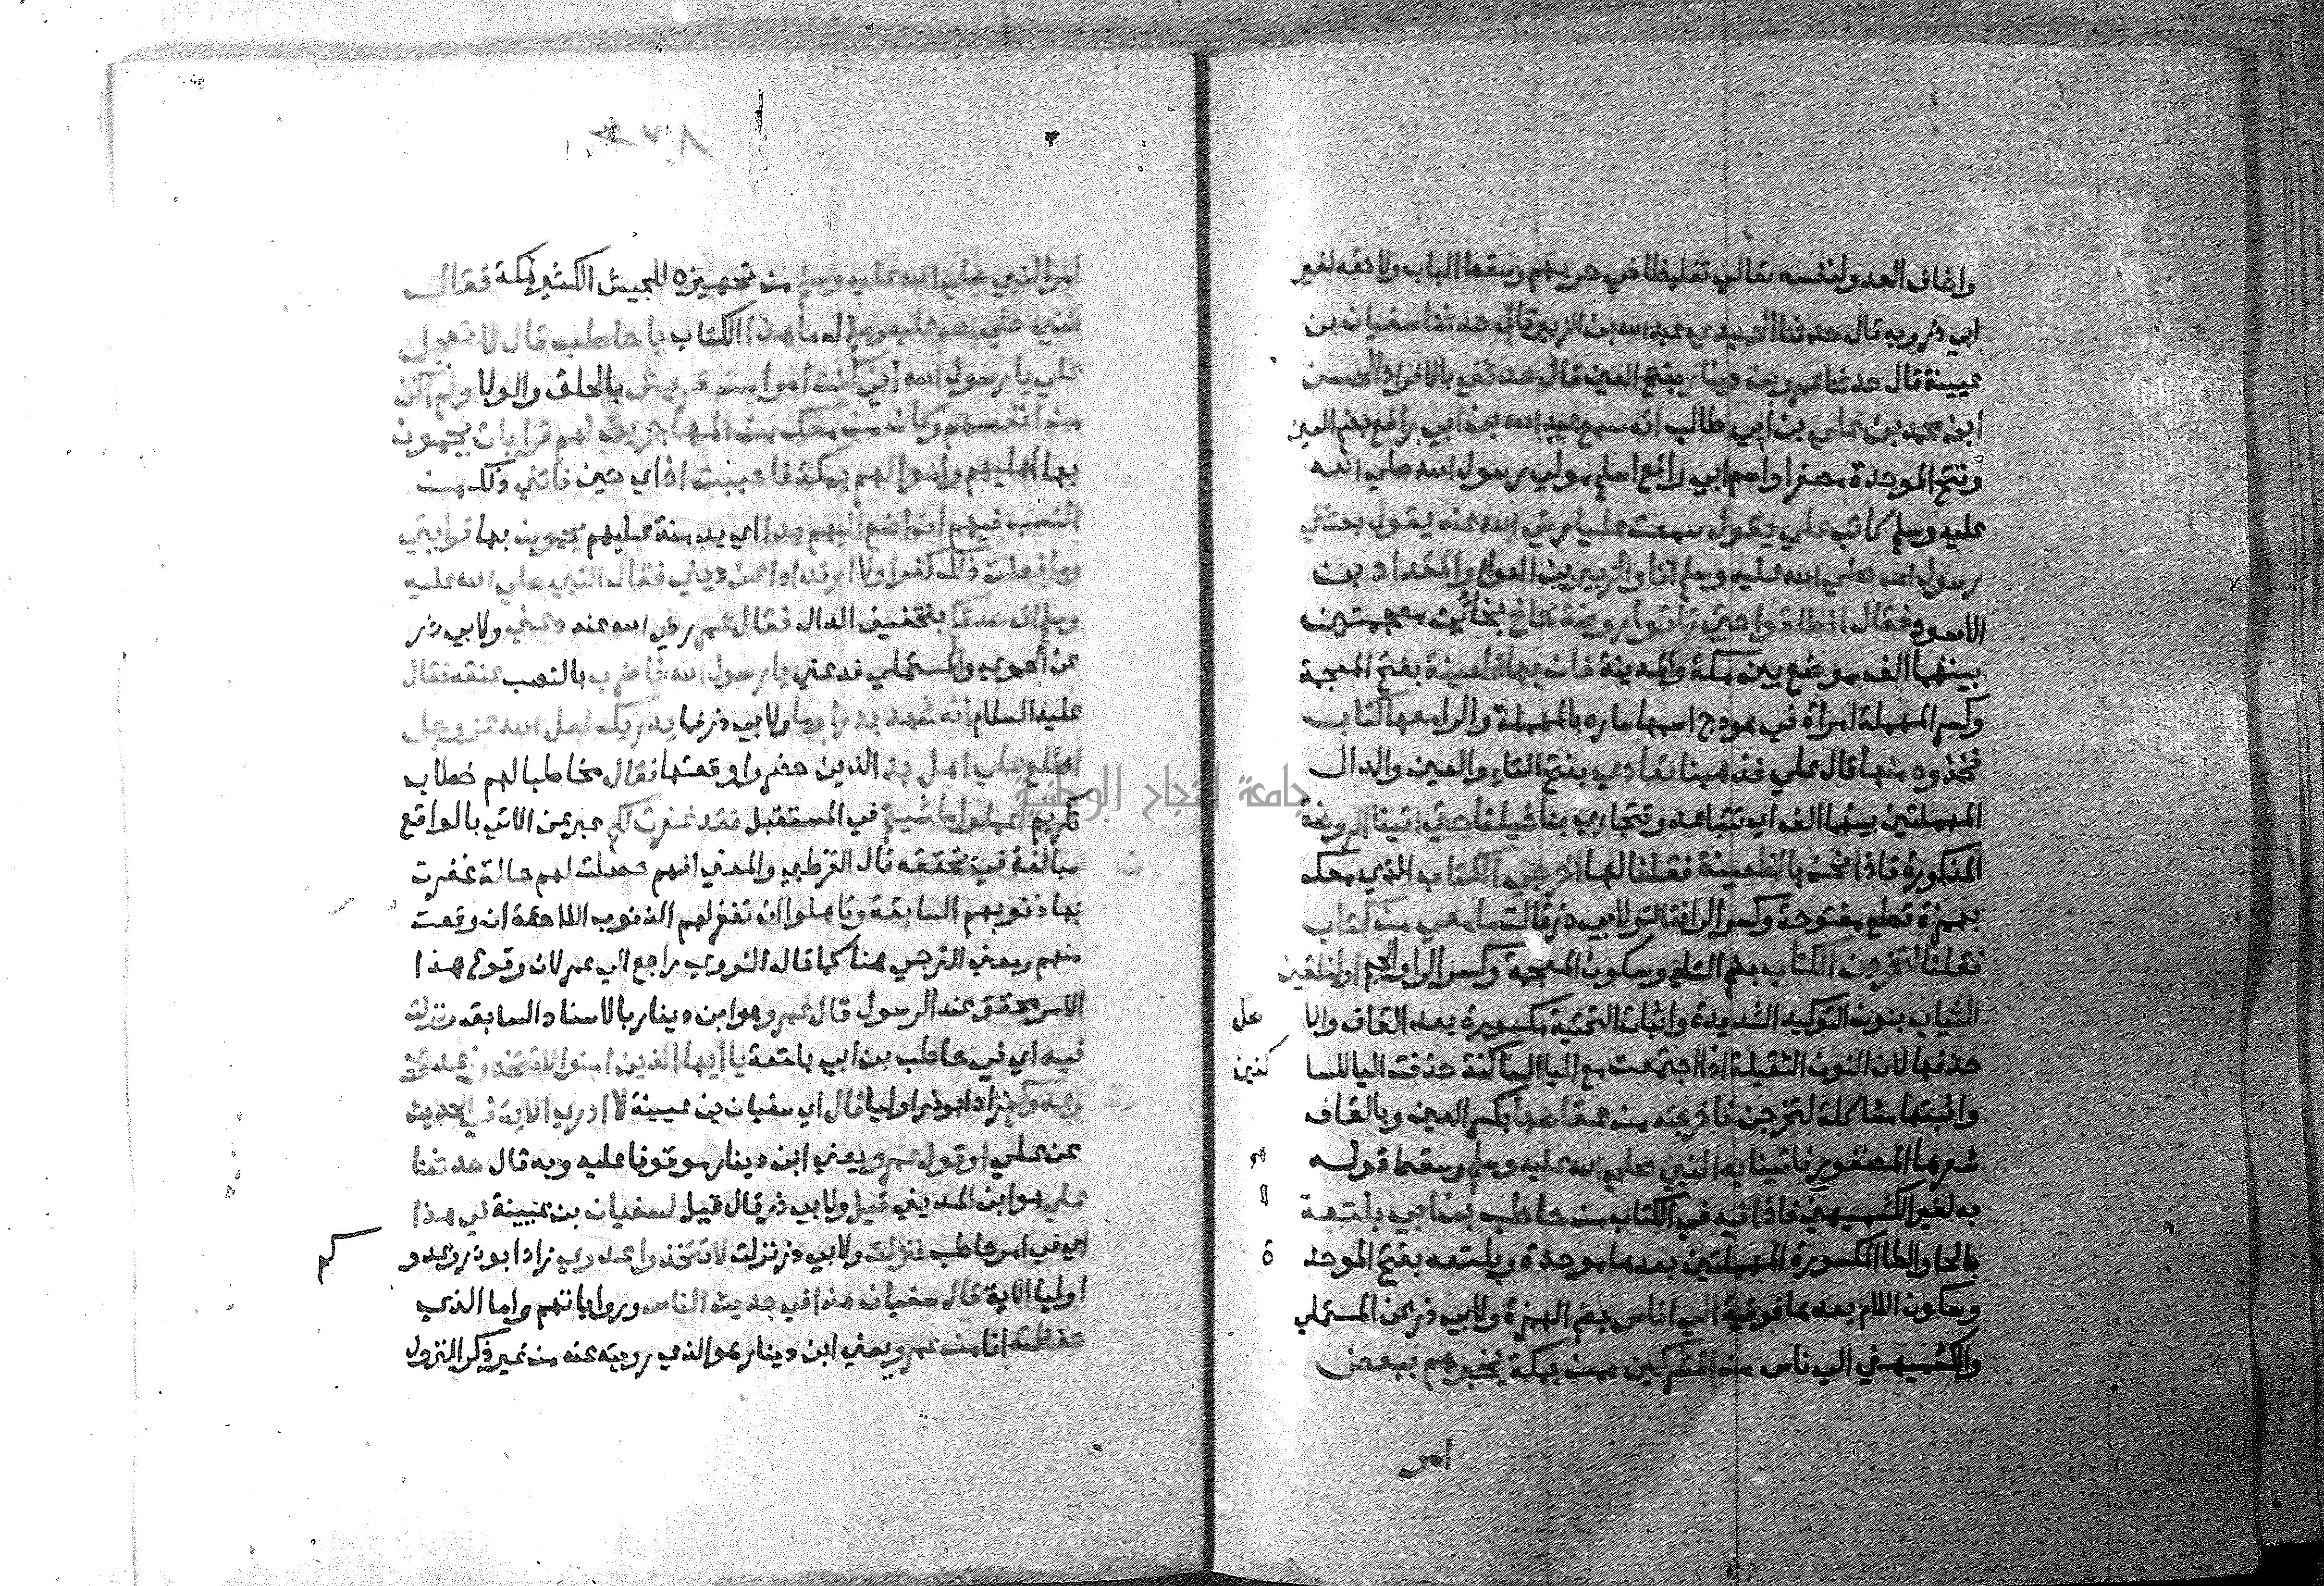 واضاف العدو لنفسه تعالي تغليظا في حربهم وسقط الباب ولاحقه لغير
ابي ذر وبه قال حدثنا الحميدي عبد الله بن الزبير قال حدثنا سفيان بن
عيينة قال حدثنا عمرو بن دينار بفتح العين قال حدثني بالافراد الحسن
ابن محمد بن علي بن ابي طالب انه سمع عبيد الله بن ابي رافع بضم العين
وفتح الموحدة مصغرا واسم ابي رافع اسلم مولي رسول الله صلي الله
عليه وسلم كاتب علي يقول سمعت عليا رضي الله عنه يقول بعثني
رسول الله صلي الله عليه وسلم انا والزبير بن العوام والمقداد بن
الاسود فقال انطلقوا حتي تاتوا روضة خاخ بخائين معجمتين
بينهما الف موضع بين مكة والمدينة فان بها ظعينة بفتح المعجمة
وكسر المهملة امرأة في هودج اسمها ساره بالمهملة والرا معها كتاب
فخذوه منها قال علي فذهبنا تعادي بفتح التاء والعين والدال
المهملتين بينهما الف اي تتباعد وتتجاري بنا خيلنا حتي اتينا الروضة
المذكورة فاذا نحن بالظعينة فقلنا لها اخرجي الكتاب الذي معك
بهمزة قطع مفتوحة وكسر الرا فقالت ولابي ذر قالت ما معي من كتاب
فقلنا لتخرجن الكتاب بضم التاء وسكون المعجمة وكسر الرا والجيم او لنلقين
الثياب بنون التوكيد الشديدة واثبات التحتية مكسورة بعد القاف والا عل
حذفها لان النون الثقيلة اذا اجتمعت مع اليا الساكنة حذفت اليا للسا كنين
واثبتها مشاكلة لتخرجن فاخرجته من عقاصها بكسر العين وبالقاف
شعرها المضفور فاتينا به النبي صلي الله عليه وسلم وسقط قوله
به لغير الكشميهني فاذا فيه في الكتاب من حاطب بن ابي بلتعة
بالحا والطا المكسورة المهملتين بعدها موحدة وبلتعه بفتح الموحد ة
وسكون اللام بعدها فوقية الي اناس بضم الهمزة ولابي ذر عن المستملي
والكشميهني الي ناس من المشركين ممن بمكة يخبرهم ببعض
امر
امر النبي صلي الله عليه وسلم من تجهيزه للجيش الكثير لمكة فقال
النبي صلي الله عليه وسلم له ما هذا الكتاب يا حاطب قال لا تعجل
علي يا رسول الله اني كنت امرا من قريش بالحلف والولا ولم اكن
من انفسهم وكان من معك من المهاجرين لهم قرابات يحمون
بها اهليهم واموالهم بمكة فاحببت اذ اي حين فاتني ذلك من
النسب فيهم ان اضع اليهم يدا اي يد منة عليهم يحمون بها قرابتي
وما فعلت ذلك كفرا ولا ارتدادا عن ديني فقال النبي صلي الله عليه
وسلم انه صدقكم بتخفيف الدال فقال عمر رضي الله عنه دعني ولابي ذر
عن الحموي والمستملي فدعني يا رسول الله فاضرب بالنصب عنقه فقال
عليه السلام انه شهد بدرا وما ولابي ذر فما يدريك لعل الله عز وجل
اطلع علي اهل بدر الذين حضروا وقعتها فقال مخاطبا لهم خطاب
تكريم اعملوا ما شيتم في المستقبل فقد غفرت لكم عبر عن الاتي بالواقع
مبالغة في تحققه قال القرطبي والمعني انهم حصلت لهم حالة غفرت
بها ذنوبهم السابقة وتاهلوا ان تغفر لهم الذنوب اللاحقة ان وقعت
منهم ومعني الترجي هنا كما قال النووي راجع الي عمر لان وقوع هذا
الامر محقق عند الرسول قال عمرو هو ابن دينار بالاسناد السابق ونزلت
فيه اي في حاطب بن ابي بلتعة يا ايها الذين امنوا لا تتخذوا عدوي
وعدوكم زاد ابو ذر اوليا قال اي سفيان بن عيينة لا ادري الاية في الحديث
عن علي او قول عمرو يعني ابن دينار موقوفا عليه وبه قال حدثنا
علي هو ابن المديني قيل ولابي ذر قال قيل لسفيان بن عيينة في هذا
اي في امر حاطب فنزلت ولابي ذر نزلت لا تتخذوا عدوي زاد ابو ذر وعدو كم
اوليا الاية قال سفيان هذا في حديث الناس ورواياتهم واما الذي
حفظته انا من عمرو يعني ابن دينار هو الذي رويته عنه من غير ذكر النزول
جامعة النجاح الوطنية